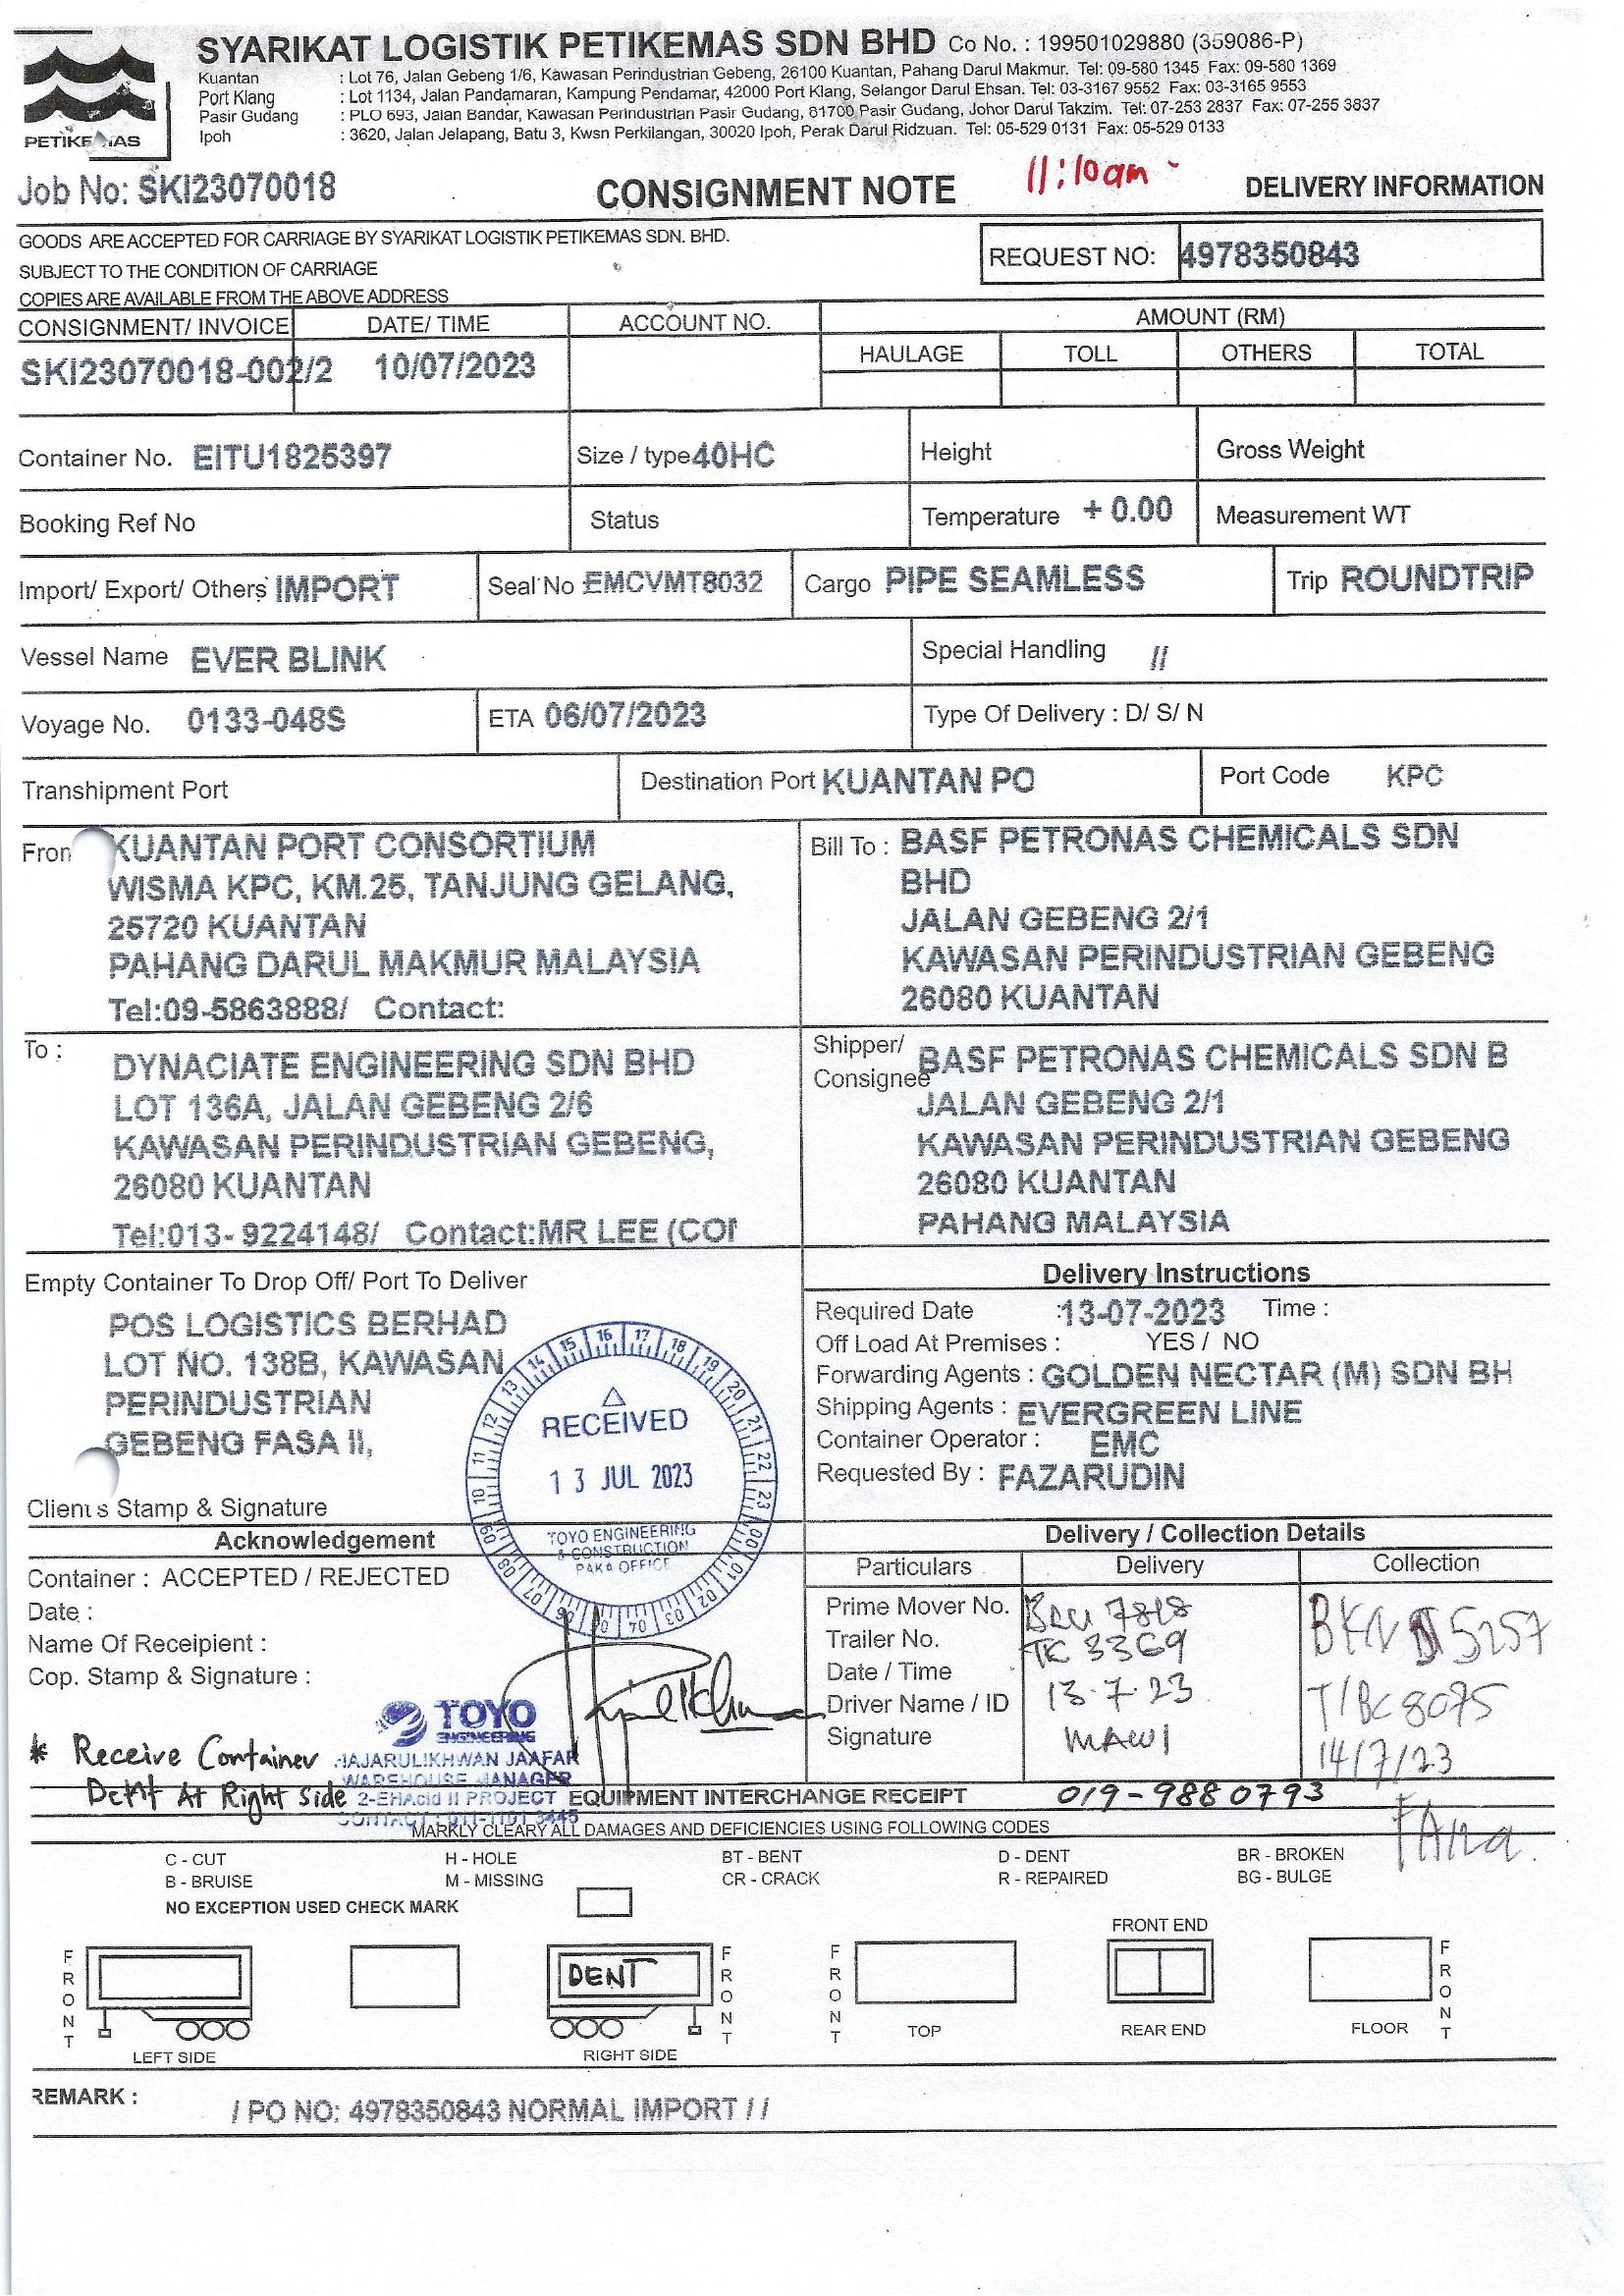 SYARIKAT LOGISTIK PETIKEMAS SDN BHD Co No. : 199501029880 (359086-P)
Kuantan : Lot 76, Jalan Gebeng 1/6, Kawasan Perindustrian Gebeng, 26100 Kuantan, Pahang Darul Makmur. Tel: 09-580 1345 Fax: 09-580 1369
Port Klang : Lot 1134, Jalan Pandamaran, Kampung Pendamar, 42000 Port Klang, Selangor Darul Ehsan. Tel: 03-3167 9552 Fax: 03-3165 9553
Pasir Gudang : PLO 693, Jalan Bandar, Kawasan Perindustrian Pasir Gudang, 81700 Pasir Gudang, Johor Darul Takzim. Tel: 07-253 2837 Fax: 07-255 3837
Ipoh : 3620, Jalan Jelapang, Batu 3, Kwsn Perkilangan, 30020 Ipoh, Perak Darul Ridzuan. Tel: 05-529 0131 Fax: 05-529 0133
Job No: SKI23070018 CONSIGNMENT NOTE 11:10am DELIVERY INFORMATION
GOODS ARE ACCEPTED FOR CARRIAGE BY SYARIKAT LOGISTIK PETIKEMAS SDN. BHD.
SUBJECT TO THE CONDITION OF CARRIAGE
COPIES ARE AVAILABLE FROM THE ABOVE ADDRESS
REQUEST NO: 4978350843
CONSIGNMENT/ INVOICE DATE/ TIME ACCOUNT NO. AMOUNT (RM)
HAULAGE TOLL OTHERS TOTAL
SKI23070018-002/2 10/07/2023
Container No. EITU1825397 Size / type 40HC Height Gross Weight
Booking Ref No Status Temperature + 0.00 Measurement WT
Import/ Export/ Others IMPORT Seal No EMCVMT8032 Cargo PIPE SEAMLESS Trip ROUNDTRIP
Vessel Name EVER BLINK Special Handling //
Voyage No. 0133-048S ETA 06/07/2023 Type Of Delivery : D/ S/ N
Transhipment Port Destination Port KUANTAN PO Port Code KPC
KUANTAN PORT CONSORTIUM
WISMA KPC, KM.25, TANJUNG GELANG,
25720 KUANTAN
PAHANG DARUL MAKMUR MALAYSIA
Tel:09-5863888/ Contact:
Bill To : BASF PETRONAS CHEMICALS SDN
BHD
JALAN GEBENG 2/1
KAWASAN PERINDUSTRIAN GEBENG
26080 KUANTAN
To :
DYNACIATE ENGINEERING SDN BHD
LOT 136A, JALAN GEBENG 2/6
KAWASAN PERINDUSTRIAN GEBENG,
26080 KUANTAN
Tel:013- 9224148/ Contact:MR LEE
Shipper/
Consignee BASF PETRONAS CHEMICALS SDN B
JALAN GEBENG 2/1
KAWASAN PERINDUSTRIAN GEBENG
26080 KUANTAN
PAHANG MALAYSIA
Empty Container To Drop Off/ Port To Deliver
POS LOGISTICS BERHAD
LOT NO. 138B, KAWASAN
PERINDUSTRIAN
GEBENG FASA II,
Client s Stamp & Signature
RECEIVED
13 JUL 2023
TOYO ENGINEERING
& CONSTRUCTION
PAKA OFFICE
Delivery Instructions
Required Date :13-07-2023 Time :
Off Load At Premises : YES / NO
Forwarding Agents : GOLDEN NECTAR (M) SDN BH
Shipping Agents : EVERGREEN LINE
Container Operator : EMC
Requested By : FAZARUDIN
Acknowledgement
Container : ACCEPTED / REJECTED
Date :
Name Of Receipient :
Cop. Stamp & Signature :
TOYO
ENGINEERING
WAREHOUSE MANAGER
2-EHAcid II PROJECT
* Receive Container
Dent At Right Side
Delivery / Collection Details
Particulars Delivery Collection
Prime Mover No. 7818 5257
Trailer No. TC 3369 T/BC 8075
Date / Time 13.7.23 14/7/23
Driver Name / ID MAWI
Signature
EQUIPMENT INTERCHANGE RECEIPT 019-9880793
MARKLY CLEARY ALL DAMAGES AND DEFICIENCIES USING FOLLOWING CODES
C - CUT H - HOLE BT - BENT D - DENT BR - BROKEN
B - BRUISE M - MISSING CR - CRACK R - REPAIRED BG - BULGE
NO EXCEPTION USED CHECK MARK
FRONT END
FRONT DENT FRONT FRONT FRONT
LEFT SIDE RIGHT SIDE TOP REAR END FLOOR
REMARK : / PO NO: 4978350843 NORMAL IMPORT / /